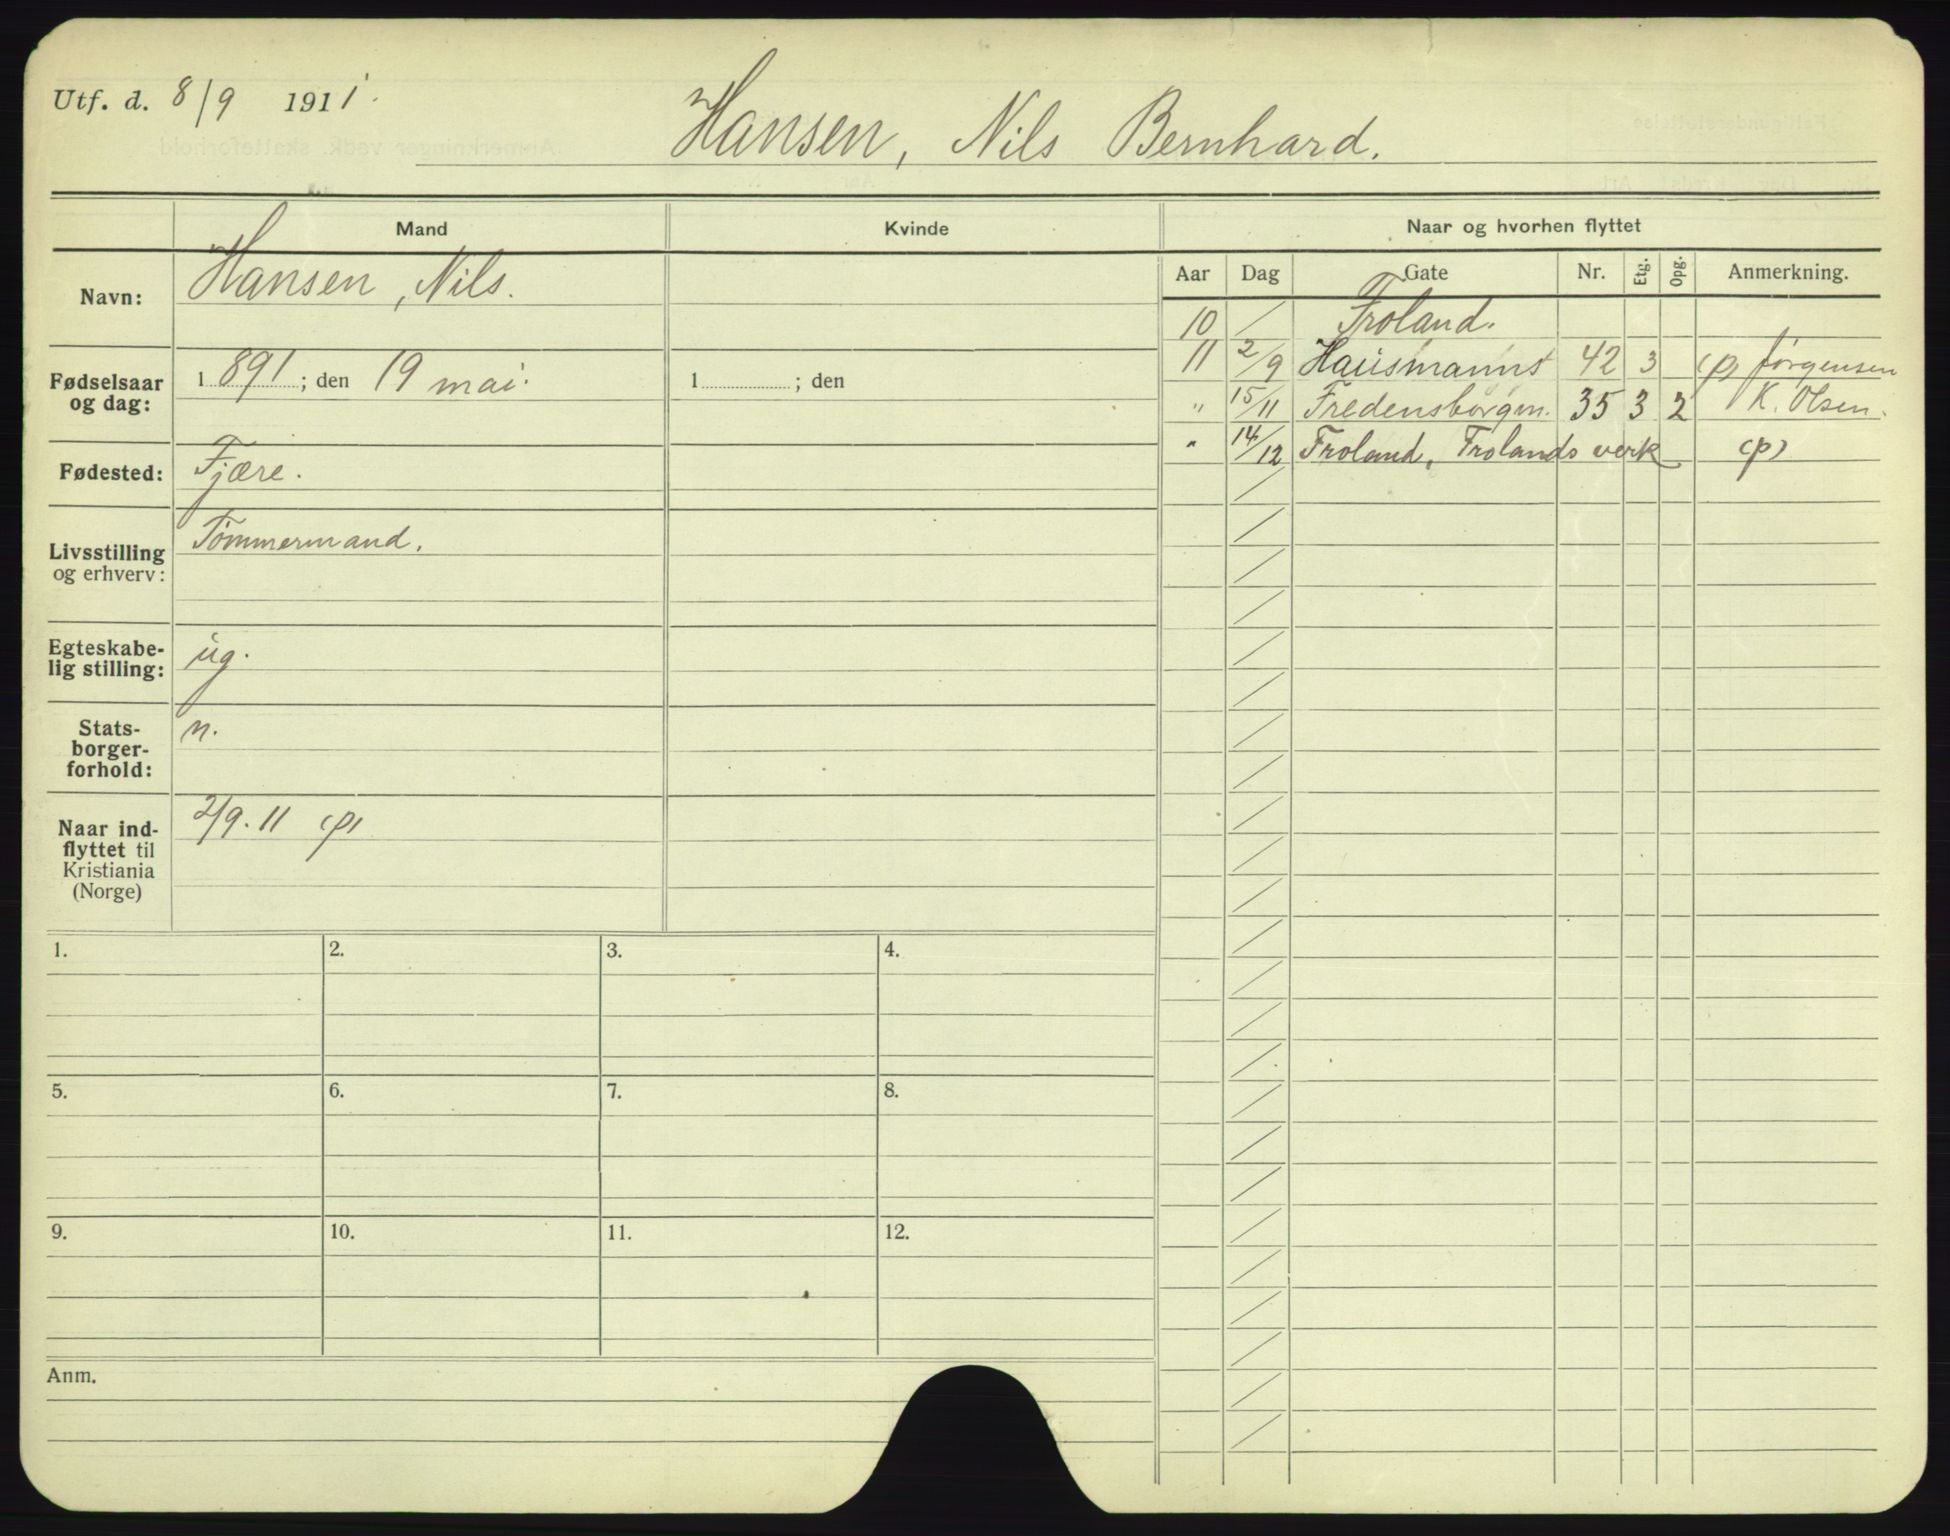 Utf. d. 8/9 1911.
Hansen, Nils Bernhard.
Mand
Kvinde
Navn: Hansen, Nils.
Fødselsaar og dag: 1891; den 19 mai. 1 ; den
Fødested: Fjære.
Livsstilling og erhverv: Tømmermand.
Egteskabe-
lig stilling: ug.
Stats-
borger-
forhold: n.
Naar ind-
flyttet til
Kristiania
(Norge) 2/9. 11 (p)
1. 2. 3. 4.
5. 6. 7. 8.
9. 10. 11. 12.
Anm.
Naar og hvorhen flyttet
Aar Dag Gate Nr. Etg. Opg. Anmerkning.
10 / Froland.
11 2/9 Hausmannst 42 3 (p) Jørgensen
" 15/11 Fredensborgvn. 35 3 2 K. Olsen.
" 14/12 Froland, Frolands verk (p)